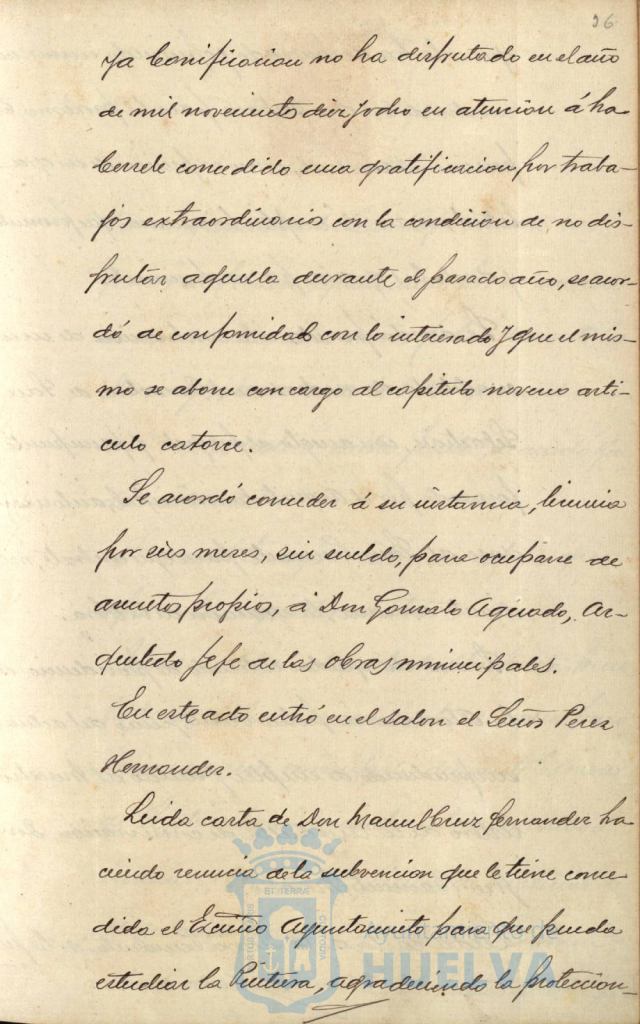 26
ya bonificacion no ha disfrutado en el año
de mil novecientos diez y ocho en atencion á ha
berele concedido una gratificacion por traba-
jos extraordinarios con la condicion de no dis-
frutar aquella durante el pasado año, se acor-
dó de conformidad con lo interesado y que el mis-
mo se abone con cargo al capitulo noveno arti-
culo catorce.
Se acordó conceder á su instancia, licencia
por seis meses, sin sueldo, para ocuparse de
asuntos propios, á Don Gonzalo Aguado, Ar-
quitecto Jefe de las obras municipales.
En este acto entró en el salon el Señor Perez
Hernandez.
Leida carta de Don Manuel Cruz Fernandez ha
ciendo renuncia de la subvencion que le tiene conce
dida el Excmo Ayuntamiento para que pueda
estudiar la Pintura, agradeciendo la proteccion-
Ayuntamiento de
HUELVA